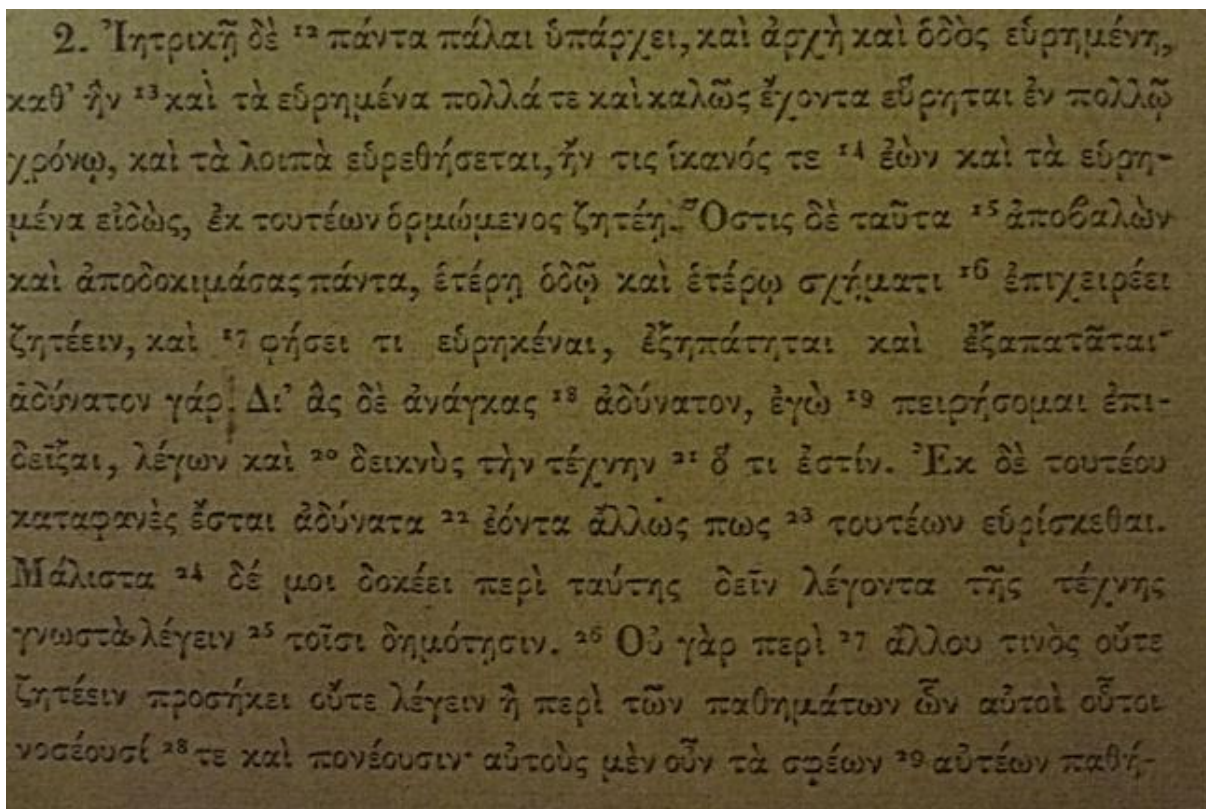 2. Ἰητρικῇ δὲ ¹² πάντα πάλαι ὑπάρχει, καὶ ἀρχὴ καὶ ὁδὸς εὑρημένη,
καθ’ ἣν ¹³ καὶ τὰ εὑρημένα πολλά τε καὶ καλῶς ἔχοντα εὕρηται ἐν πολλῷ
χρόνῳ, καὶ τὰ λοιπὰ εὑρεθήσεται, ἤν τις ἱκανός τε ¹⁴ ἐὼν καὶ τὰ εὑρη-
μένα εἰδὼς, ἐκ τουτέων ὁρμώμενος ζητέῃ. Ὅστις δὲ ταῦτα ¹⁵ ἀποϐαλὼν
καὶ ἀποδοκιμάσας πάντα, ἑτέρῃ ὁδῷ καὶ ἑτέρῳ σχήματι ¹⁶ ἐπιχειρέει
ζητέειν, καὶ ¹⁷ φήσει τι εὑρηκέναι, ἐξηπάτηται καὶ ἐξαπατᾶται·
ἀδύνατον γάρ. Δι’ ἃς δὲ ἀνάγκας ¹⁸ ἀδύνατον, ἐγὼ ¹⁹ πειρήσομαι ἐπι-
δεῖξαι, λέγων καὶ ²⁰ δεικνὺς τὴν τέχνην ²¹ ὅ τι ἐστίν. Ἐκ δὲ τουτέου
καταφανὲς ἔσται ἀδύνατα ²² ἐόντα ἄλλως πως ²³ τουτέων εὑρίσκεθαι.
Μάλιστα ²⁴ δέ μοι δοκέει περὶ ταύτης δεῖν λέγοντα τῆς τέχνης
γνωστὰ λέγειν ²⁵ τοῖσι δημότῃσιν. ²⁶ Οὐ γὰρ περὶ ²⁷ ἄλλου τινὸς οὔτε
ζητέειν προσήκει οὔτε λέγειν ἢ περὶ τῶν παθημάτων ὧν αὐτοὶ οὗτοι
νοσέουσί ²⁸ τε καὶ πονέουσιν· αὐτοὺς μὲν οὖν τὰ σφέων ²⁹ αὐτέων παθή-